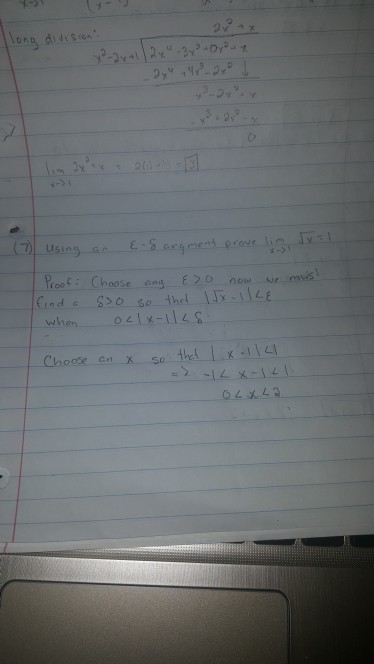 long division:
2x² + x
x²-2x+1 | 2x⁴ -3x³ +0x² + x
- 2x⁴ + 4x³ - 2x² ↓
x³ - 2x² + x
- x³ + 2x² - x
0
lim 2x² + x = 2(1)+1 = 3
x→1
(7) Using an ε-δ argment prove lim √x = 1
x→1
Proof: Choose any ε>0 now we must
find a δ>0 so that |√x - 1| < ε
when 0<|x-1|<δ
Choose an x so that |x-1|<1
=> -1< x-1<1
0<x<2